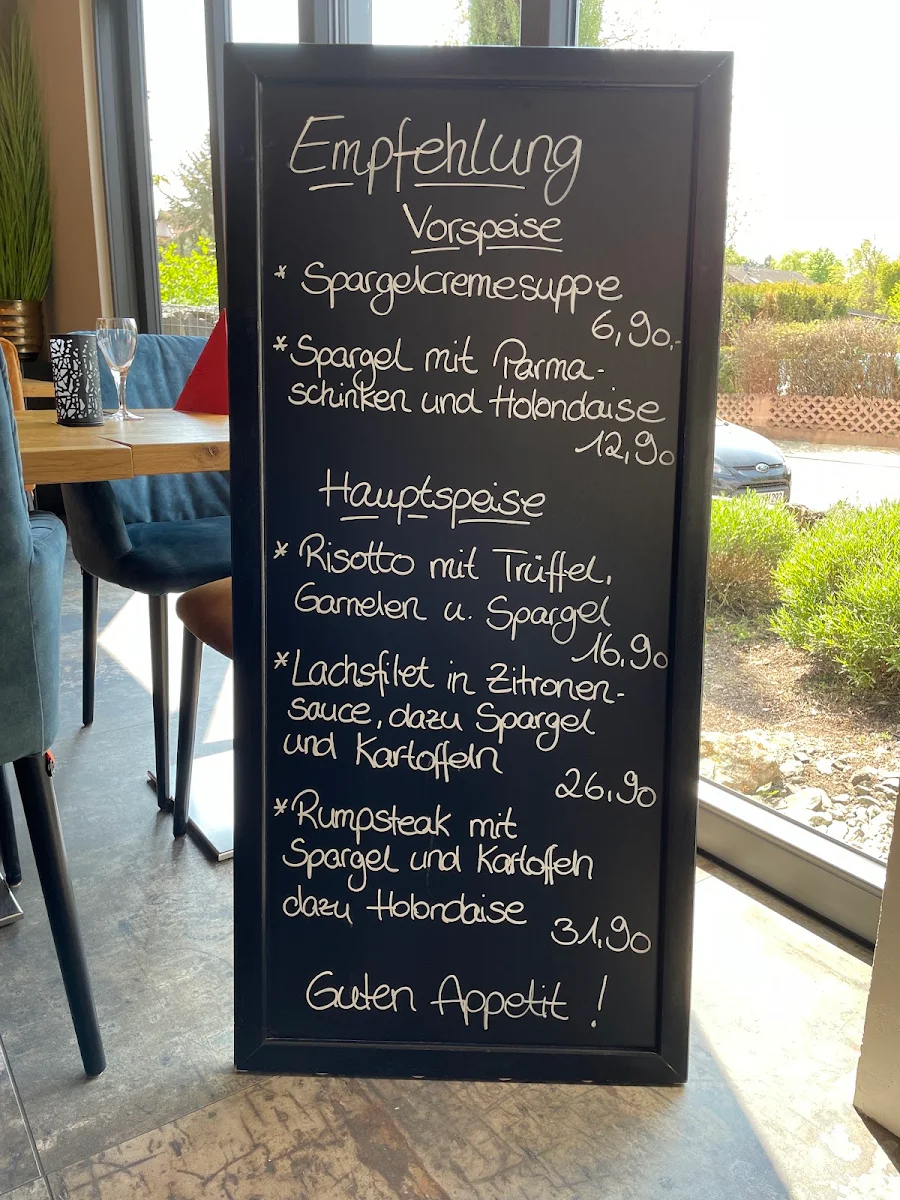 Empfehlung
Vorspeise
* Spargelcremesuppe
6,90.-
* Spargel mit Parma-
schinken und Holondaise
12,90
Hauptspeise
* Risotto mit Trüffel,
Garnelen u. Spargel
16,90
* Lachsfilet in Zitronen-
sauce, dazu Spargel
und Kartoffeln
26,90
* Rumpsteak mit
Spargel und Kartoffeln
dazu Holondaise
31,90
Guten Appetit !